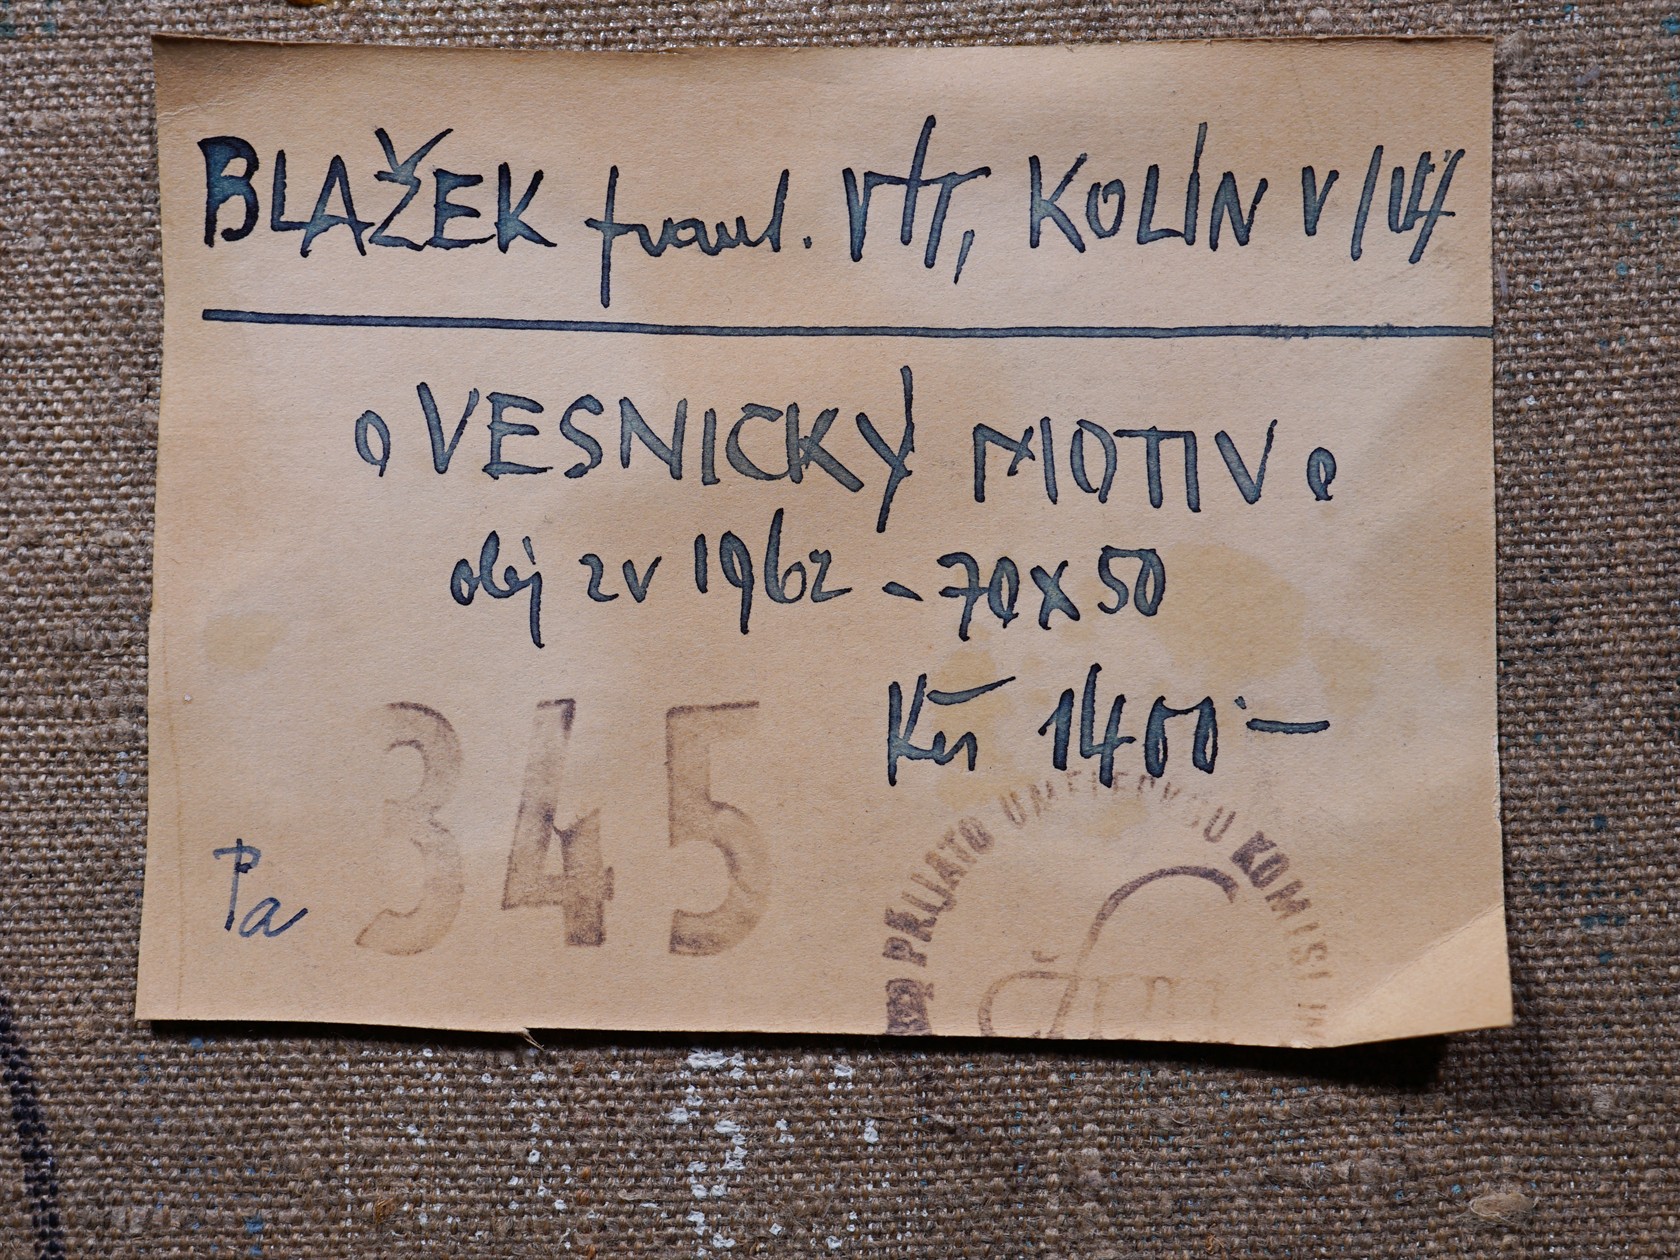 BLAŽEK frant. VÍT, KOLÍN V/
o VESNICKÝ MOTIV o
olej zv 1962 - 70x50
Kčs 1400·—
345
Pa
PŘIJATO UMĚLECKOU KOMISI